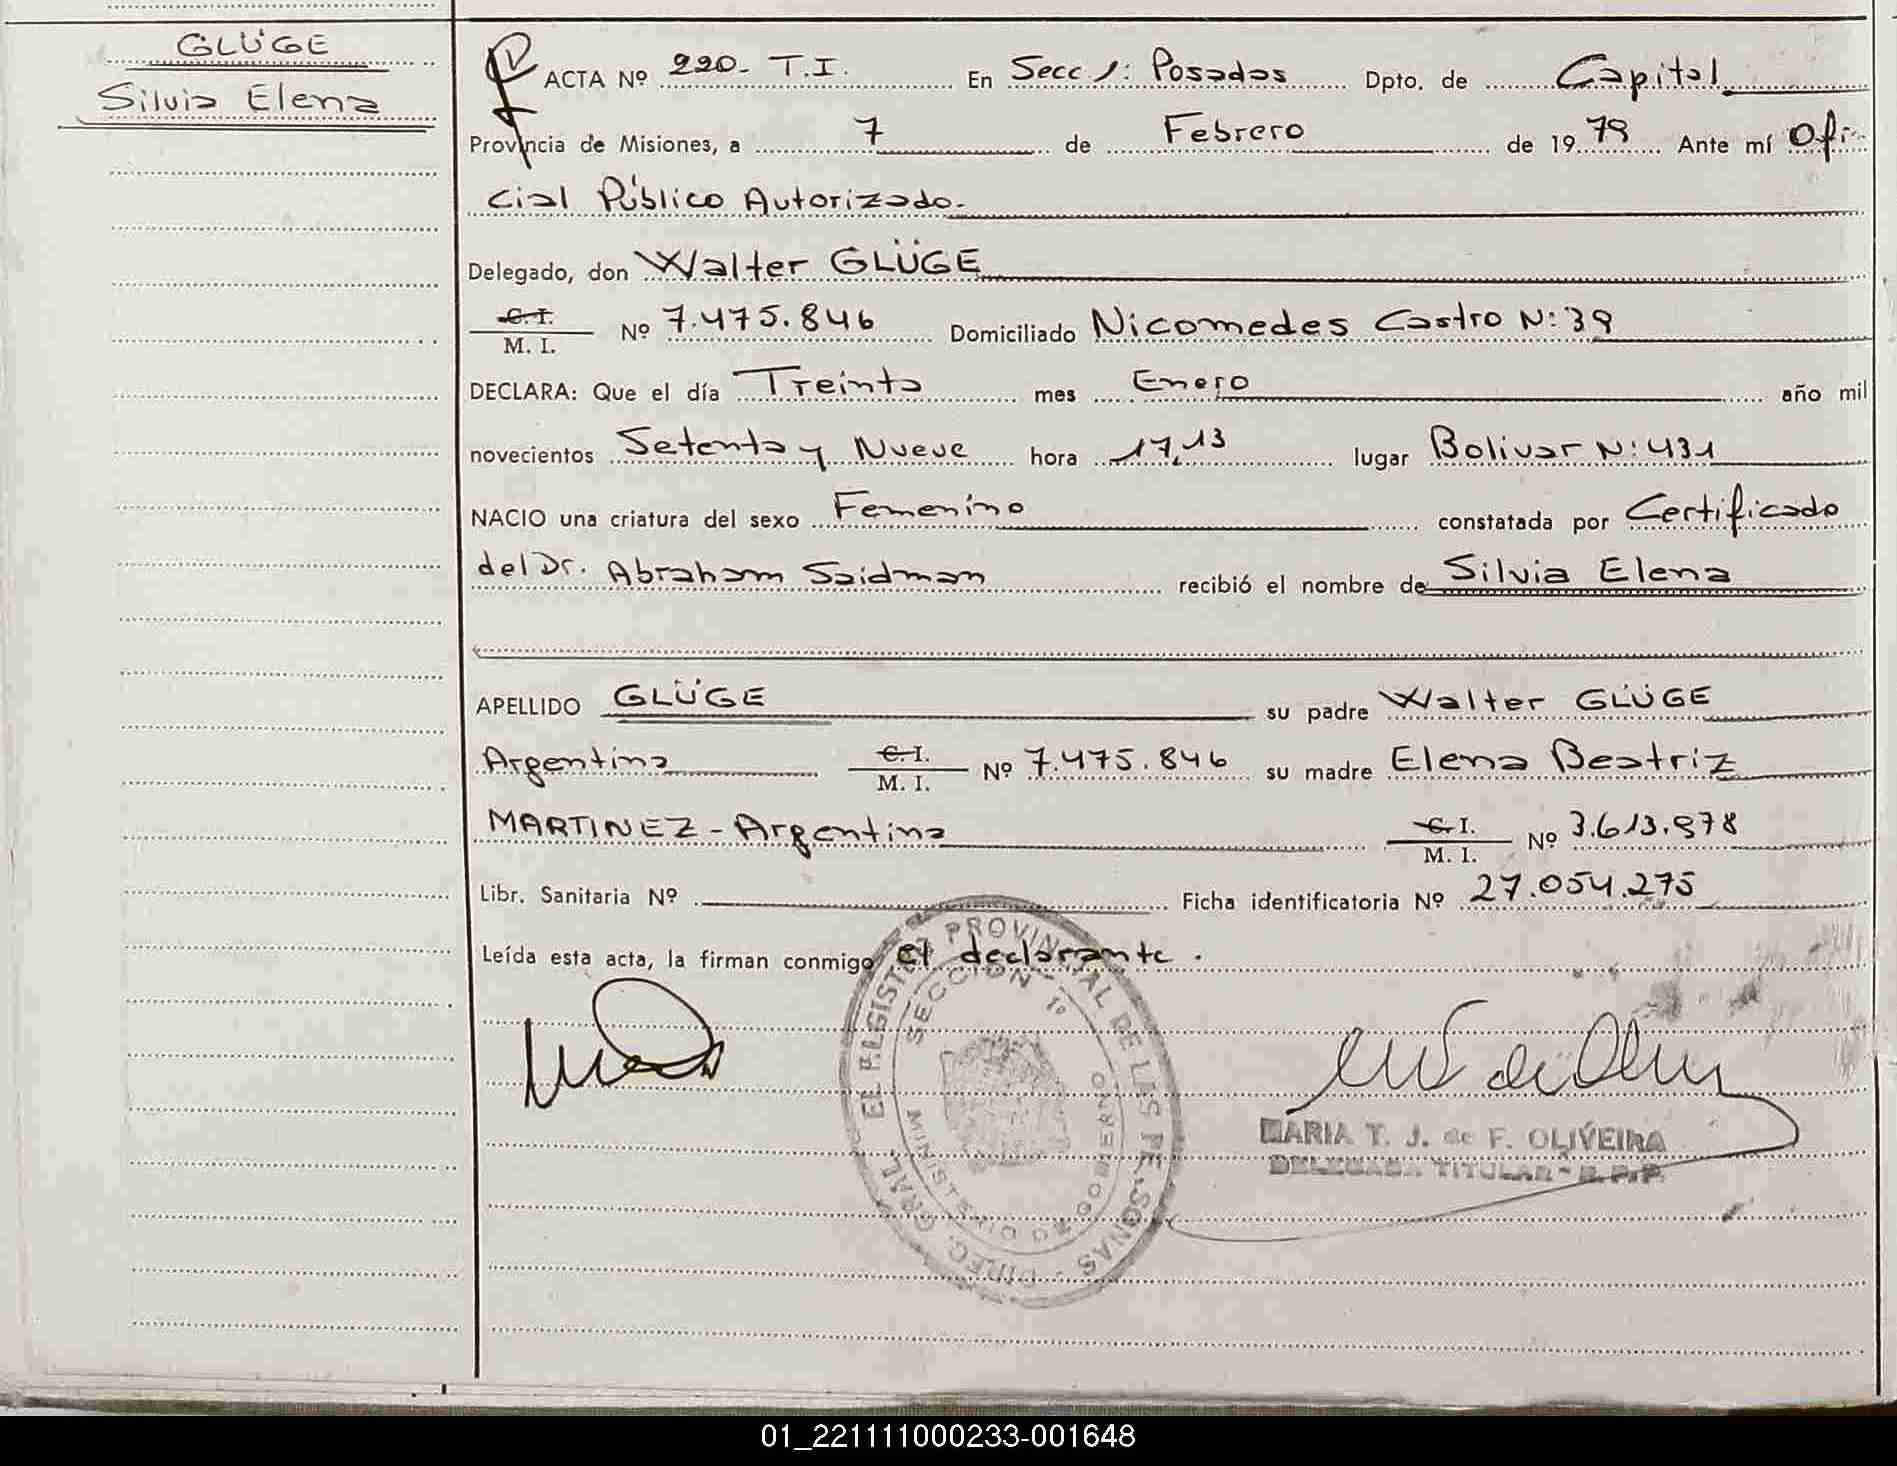 GLÜGE
Silvia Elena
ACTA Nº 220- T.I. En Secc 1: Posadas Dpto. de Capital
Provincia de Misiones, a 7 de Febrero de 1979 Ante mí Ofi-
cial Público Autorizado.
Delegado, don Walter GLÜGE
C.I.
M. I. Nº 7.475.846 Domiciliado Nicomedes Castro N: 39
DECLARA: Que el día Treinta mes Enero año mil
novecientos Setenta y Nueve hora 17,13 lugar Bolivar N: 431
NACIO una criatura del sexo Femenino constatada por Certificado
del Dr. Abraham Saidman recibió el nombre de Silvia Elena
APELLIDO GLÜGE su padre Walter GLÜGE
Argentina C.I. M. I. Nº 7.475.846 su madre Elena Beatriz
MARTINEZ - Argentina C.I. M. I. Nº 3.613.978
Libr. Sanitaria Nº Ficha identificatoria Nº 27.054.275
Leída esta acta, la firman conmigo el declarante.
PROVINCIAL DE LAS PERSONAS - DIREC. GRAL. DEL REGISTRO
SECCION 1º
MINISTERIO DE GOBIERNO
MARIA T. J. de F. OLIVEIRA
DELEGADA TITULAR - R.P.P.
01_221111000233-001648